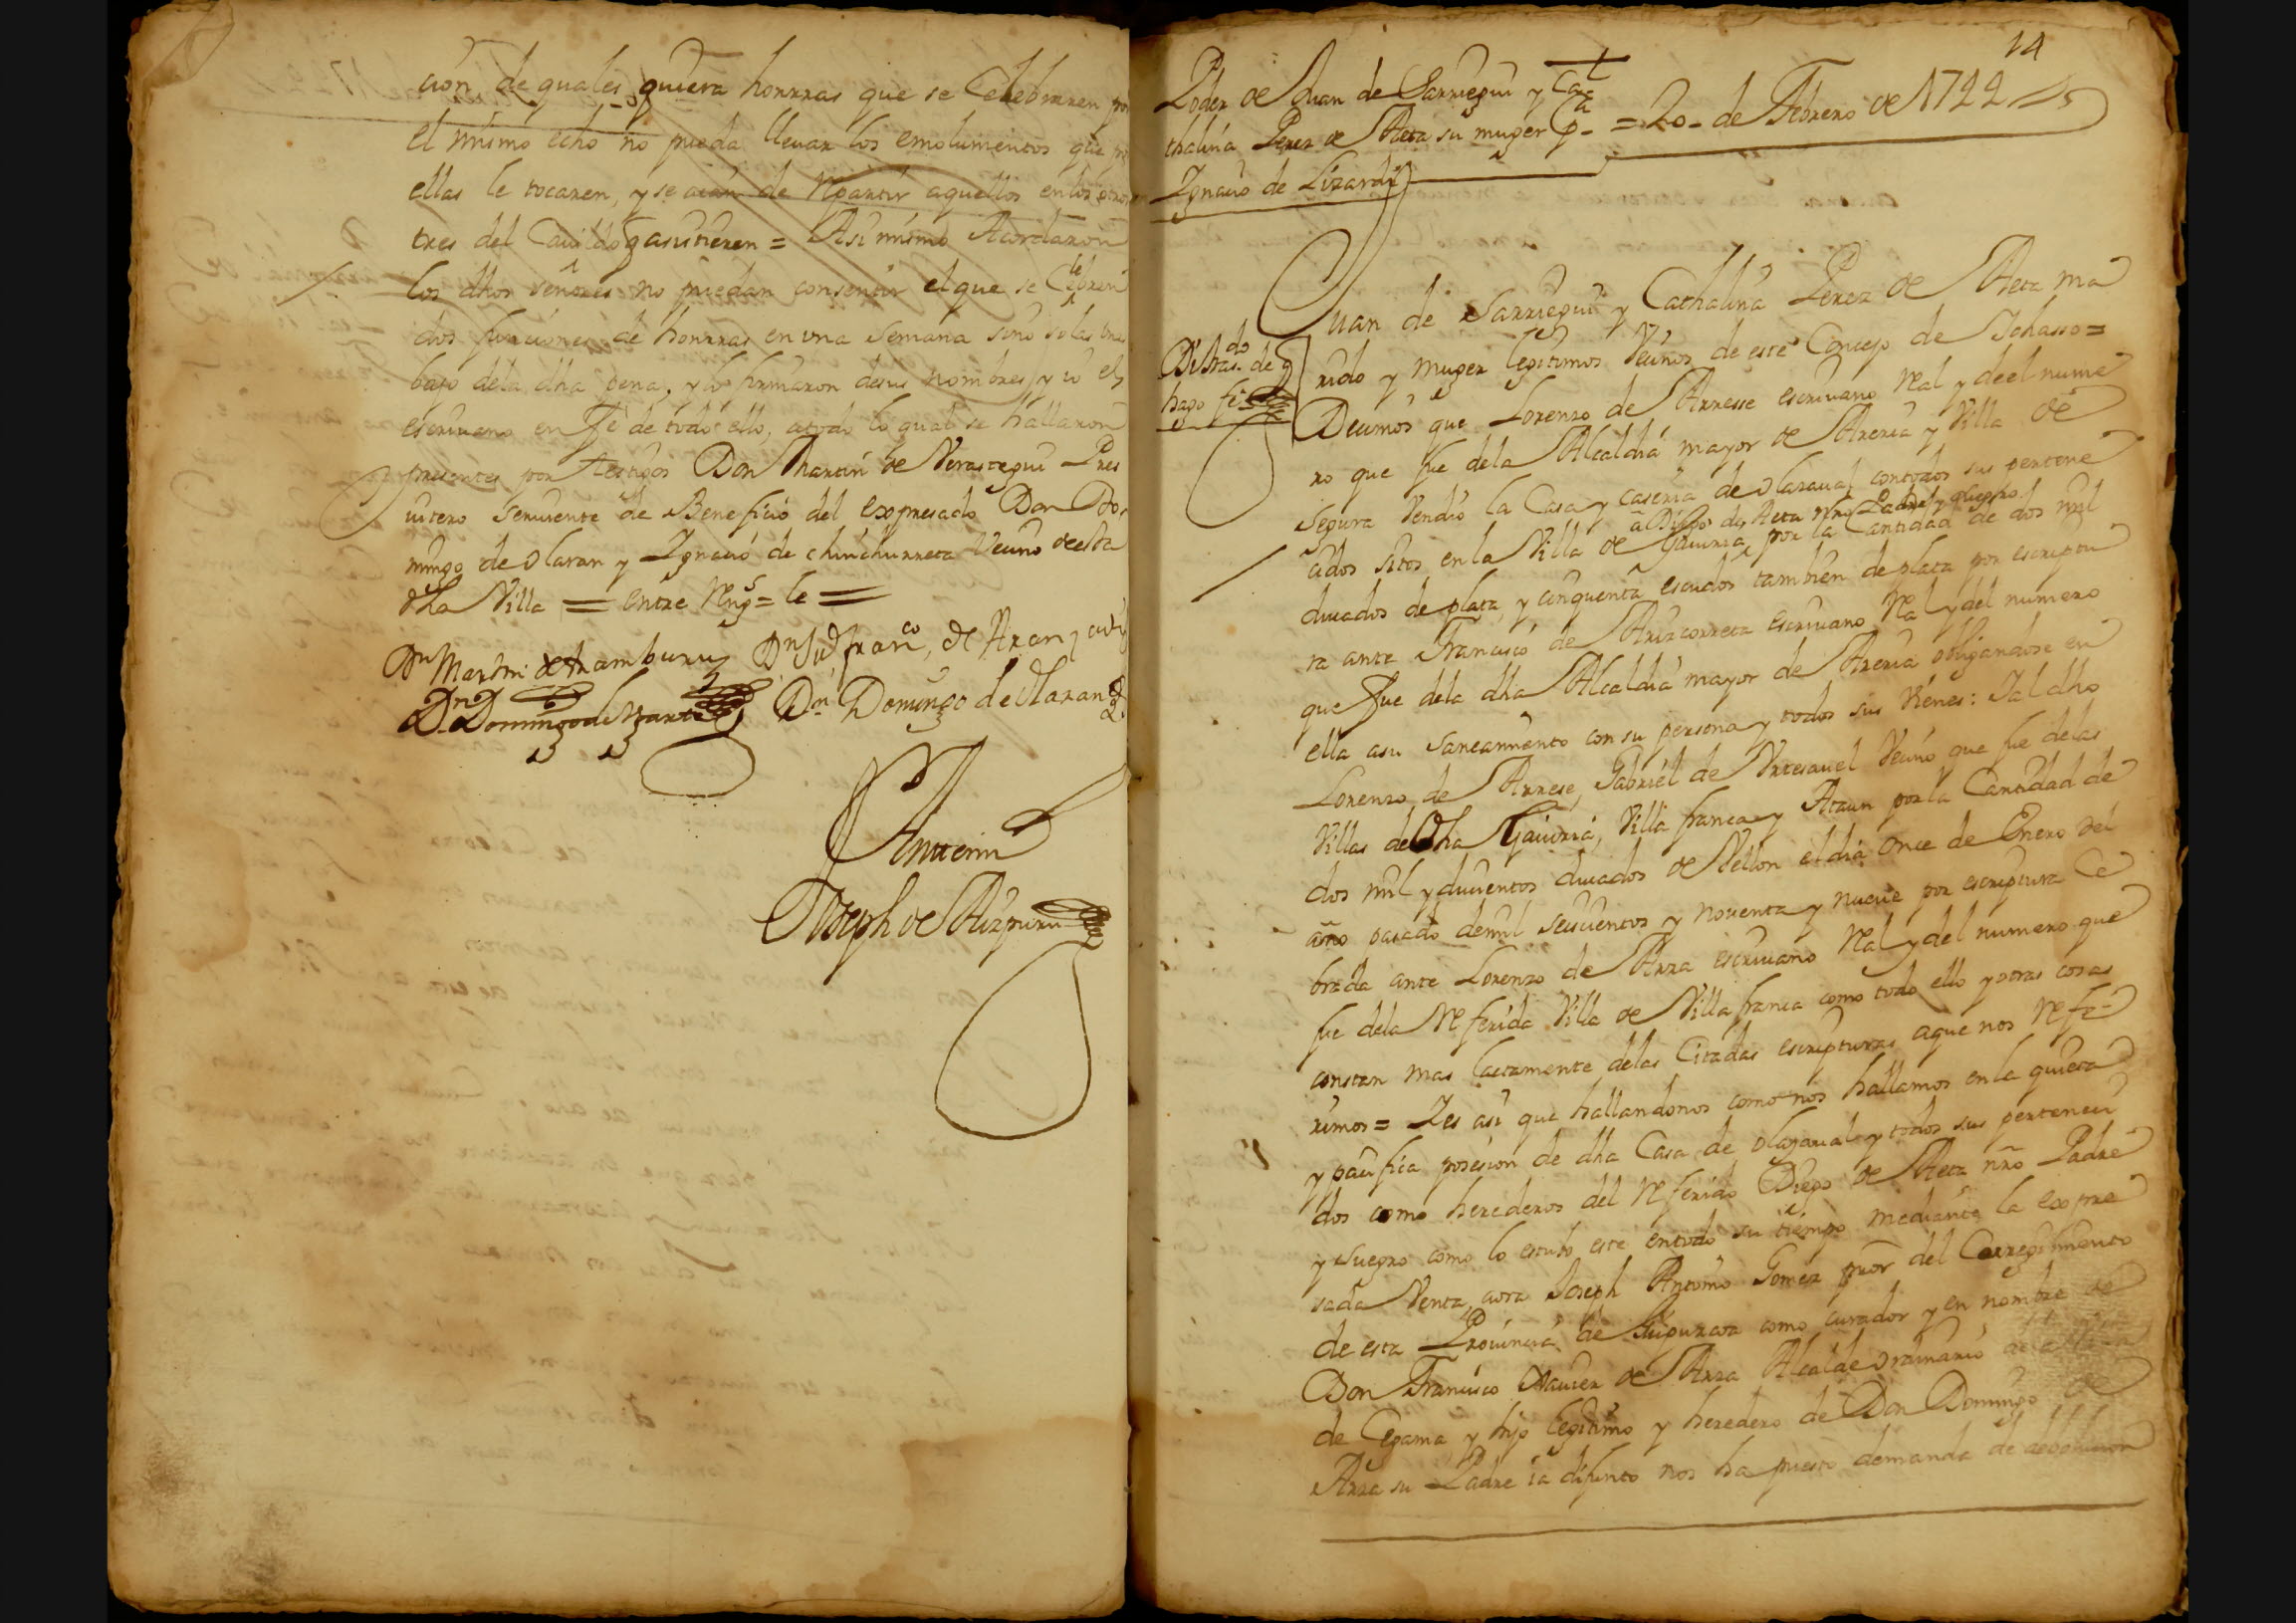 cion de quales quiera honrras que se Celebraren por
el mismo echo no pueda llevar los emolumentos que por
ellas le tocaren, y se aian de Repartir aquellos en los otros
tres del Cavildo q asistieren = Asi mismo Acordaron
los dhos señores no puedan consentir el que se Celebren
dos funciones de honrras en vna semana sino solas vnas
bajo dela dha pena, y lo firmaron de sus nombres, y io el
escrivano en Fe de todo ello, a todo lo qual se hallaron
presentes por testigos Don Martin de Verastegui Pres
vitero serviente de Beneficio del expresado Don Do
mingo de Olaran y Ignacio de chinchurreta Vecino de esta
dha Villa = entre Reng.s = le =
Dn Martin de Aramburu Dn Juo franco, de Aran
Dn Domingo de Yarte Dn Domingo de Olaran
Antemi
Joseph de Aizpuru
14
Poder de Juan de Sarriegui y Ca
thalina Perez de Aeta su muger pa = 20 - de Febrero de 1722
Ignacio de Lizardi
Juan de Sarriegui y Cathalina Perez de Aeta ma
rido y muger legitimos Vecinos de este Concejo de Ichasso =
Di dos tras. de q
hago fe
Decimos que Lorenzo de Arrese escrivano Real y de el nume
ro que fue dela Alcaldia mayor de Areria y Villa de
Segura Vendio la Casa y caseria de Olazaval con todos sus pertene
a Diego de Aeta nro Padre y suegro
cidos sitos en la Villa de Gaviria, por la Cantidad de dos mil
ducados de plata, y cinquenta escudos tambien de plata por escriptu
ra ante Francisco de Arizcorreta escrivano Real y del numero
que fue dela dha Alcaldia mayor de Areria obligandose en
ella a su saneamiento con su persona y todos sus Vienes: Y al dho
Lorenzo de Arrese, Gabriel de Vrtesavel Vecino que fue delas
Villas de dha Gaviria, Villa franca y Ataun por la Cantidad de
dos mil y ducientos ducados de Vellon el dia once de Enero del
año pasado de mil seiscientos y noventa y nueve por escriptura Ce
brada ante Lorenzo de Arra escrivano Real y del numero que
fue dela Referida Villa de Villa franca como todo ello y otras cosas
constan mas lactamente delas Citadas escripturas a que nos Refe
rimos = Y es asi que hallandonos como nos hallamos en la quieta
y pacifica posesion de dha Casa de Olazaval y todos sus perteneci
dos como herederos del Referido Diego de Aeta nro Padre
y suegro como lo estubo este en todo su tiempo mediante la expre
sada Venta, aora Joseph Antonio Gomez pror del Corregimiento
de esta Provincia de Guipuzcoa como curador y en nombre de
Don Francisco Xavier de Arra Alcalde ordinario de la Villa
de Cegama y hijo legitimo y heredero de Don Domingo de
Arra su Padre ia difunto nos ha puesto demanda de